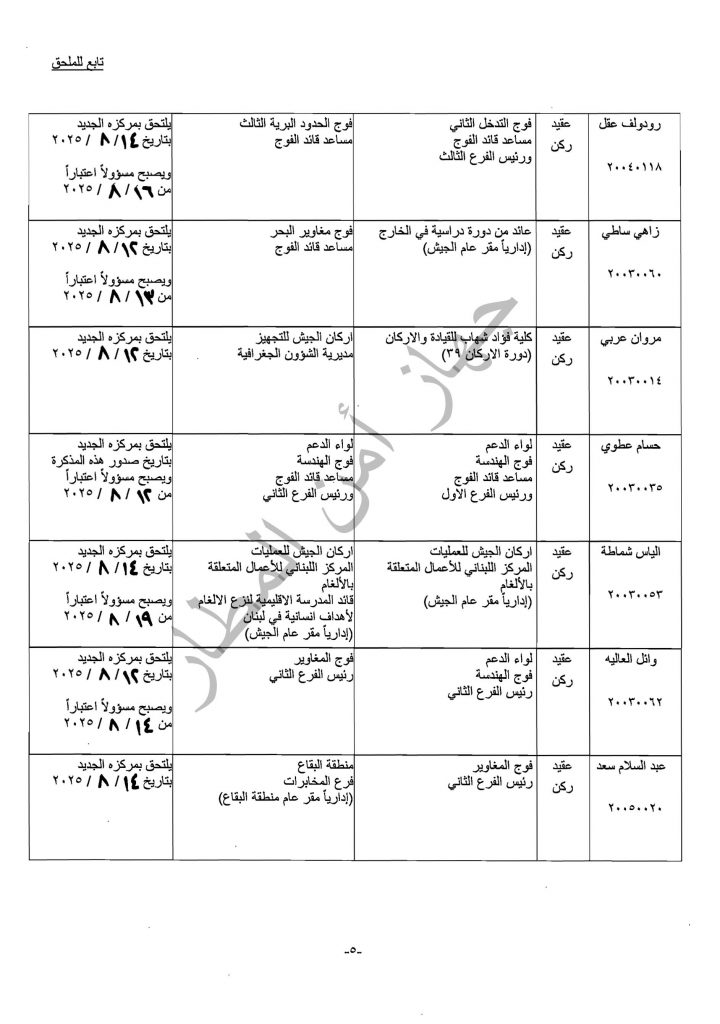 تابع للملحق
رودولف عقل
٢٠٠٤٠١١٨
عقيد
ركن
فوج التدخل الثاني
مساعد قائد الفوج
ورئيس الفرع الثالث
فوج الحدود البرية الثالث
مساعد قائد الفوج
يلتحق بمركزه الجديد
بتاريخ ١٤/ ٨ / ٢٠٢٥
ويصبح مسؤولاً اعتباراً
من ١٦/ ٨ / ٢٠٢٥
زاهي ساطي
٢٠٠٣٠٠٦٠
عقيد
ركن
عائد من دورة دراسية في الخارج
(إدارياً مقر عام الجيش)
فوج مغاوير البحر
مساعد قائد الفوج
يلتحق بمركزه الجديد
بتاريخ ١٢/ ٨ / ٢٠٢٥
ويصبح مسؤولاً اعتباراً
من ١٣/ ٨ / ٢٠٢٥
مروان عربي
٢٠٠٣٠٠١٤
عقيد
ركن
كلية فؤاد شهاب للقيادة والاركان
(دورة الاركان ٣٩)
اركان الجيش للتجهيز
مديرية الشؤون الجغرافية
يلتحق بمركزه الجديد
بتاريخ ١٢/ ٨ / ٢٠٢٥
حسام عطوي
٢٠٠٣٠٠٣٥
عقيد
ركن
لواء الدعم
فوج الهندسة
مساعد قائد الفوج
ورئيس الفرع الاول
لواء الدعم
فوج الهندسة
مساعد قائد الفوج
ورئيس الفرع الثاني
يلتحق بمركزه الجديد
بتاريخ صدور هذه المذكرة
ويصبح مسؤولاً اعتباراً
من ١٢/ ٨ / ٢٠٢٥
الياس شماطة
٢٠٠٣٠٠٥٣
عقيد
ركن
اركان الجيش للعمليات
المركز اللبناني للأعمال المتعلقة
بالألغام
(إدارياً مقر عام الجيش)
اركان الجيش للعمليات
المركز اللبناني للأعمال المتعلقة
بالألغام
قائد المدرسة الاقليمية لنزع الالغام
لأهداف انسانية في لبنان
(إدارياً مقر عام الجيش)
يلتحق بمركزه الجديد
بتاريخ ١٤/ ٨ / ٢٠٢٥
ويصبح مسؤولاً اعتباراً
من ١٩/ ٨ / ٢٠٢٥
وائل العاليه
٢٠٠٣٠٠٦٢
عقيد
ركن
لواء الدعم
فوج الهندسة
رئيس الفرع الثاني
فوج المغاوير
رئيس الفرع الثاني
يلتحق بمركزه الجديد
بتاريخ ١٢/ ٨ / ٢٠٢٥
ويصبح مسؤولاً اعتباراً
من ١٤/ ٨ / ٢٠٢٥
عبد السلام سعد
٢٠٠٥٠٠٢٠
عقيد
ركن
فوج المغاوير
رئيس الفرع الثاني
منطقة البقاع
فرع المخابرات
(إدارياً مقر عام منطقة البقاع)
يلتحق بمركزه الجديد
بتاريخ ١٤/ ٨ / ٢٠٢٥
جهاز أمن المطار
-٥-